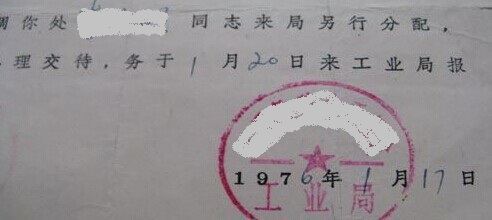 调你处 同志来局另行分配，
理交待，务于1月20日来工业局报
1976年1月17日
工业局